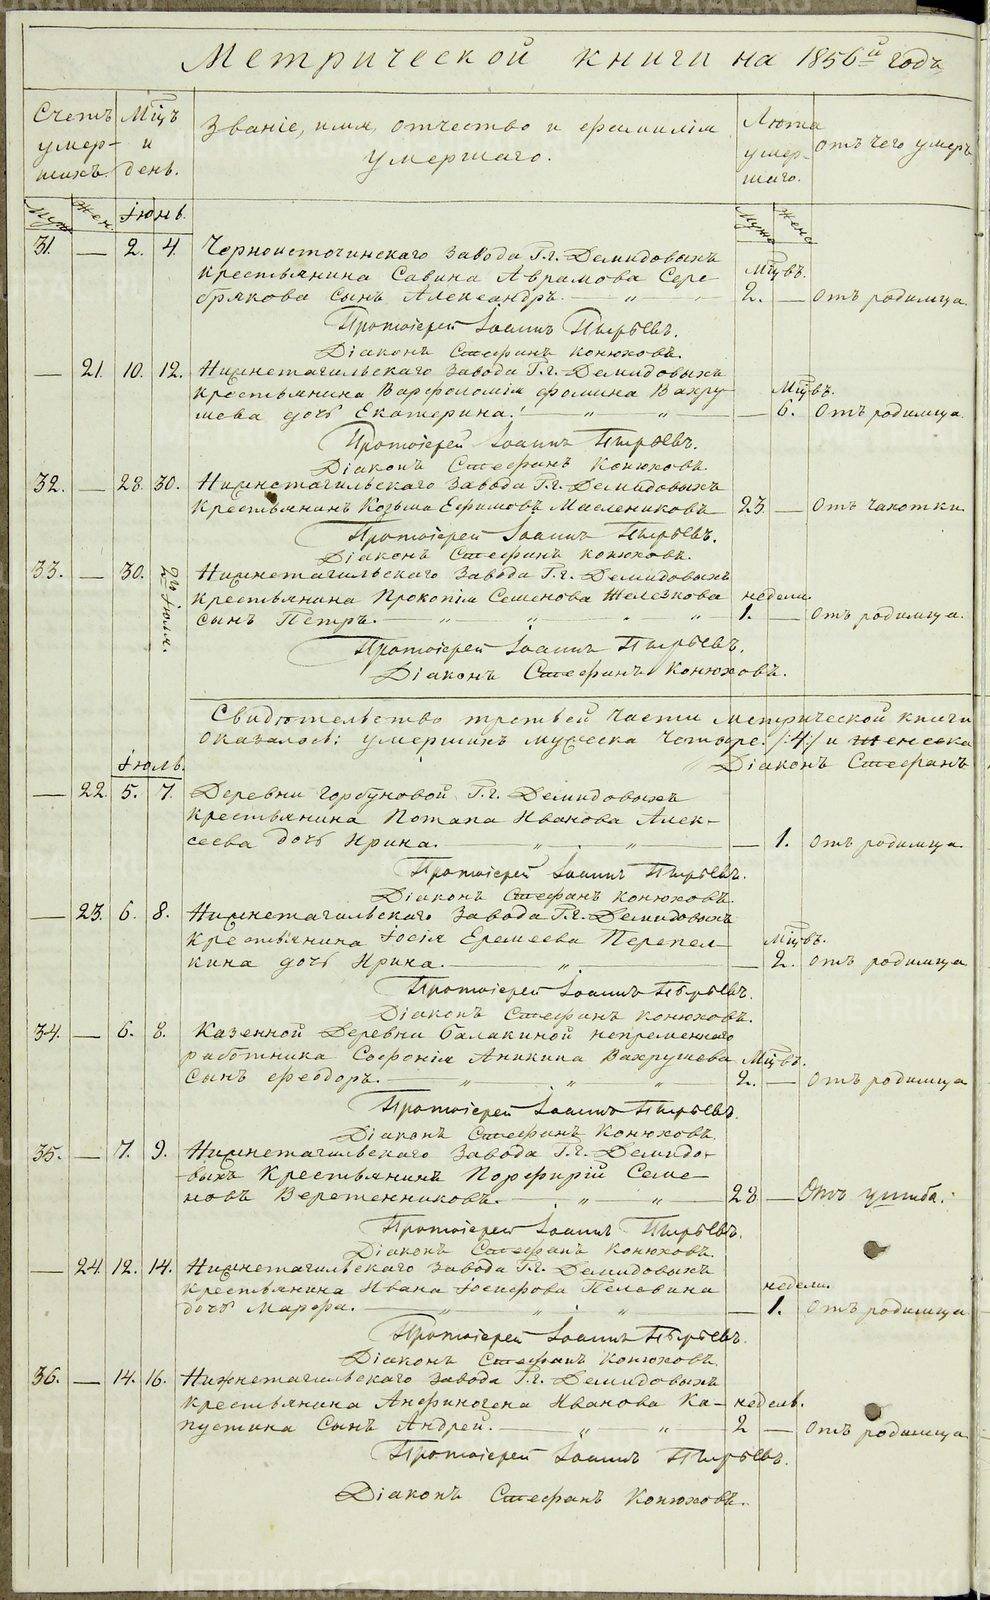 Метрической книги на 1856й годъ
Счетъ умершихъ. Мцъ и день. Званіе, имя, отчество и фамилія умершаго. Лета умершаго. Отъ чего умеръ
Муж Жен Іюнь. Муж Жен
31. — 2. 4. Черноисточинскаго завода Г.г. Демидовыхъ
крестьянина Савина Аврамова Сере- Мцвъ.
брякова сынъ Александръ. 2. — Отъ родимца.
Протоіерей Іоаннъ Пырьевъ.
Діаконъ Стефанъ Конюховъ.
— 21. 10. 12. Нижнетагильскаго завода Г.г. Демидовыхъ
крестьянина Варфоломія Фомина Вахру Мцвъ.
шева дочь Екатерина. — 6. Отъ родимца.
Протоіерей Іоаннъ Пырьевъ.
Діаконъ Стефанъ Конюховъ.
32. — 28. 30. Нижнетагильскаго завода Г.г. Демидовыхъ
крестьянинъ Козьма Ефимовъ Маслениковъ 23. — Отъ чахотки.
Протоіерей Іоаннъ Пырьевъ.
Діаконъ Стефанъ Конюховъ.
33. — 30. 2го Іюля. Нижнетагильскаго завода Г.г. Демидовыхъ
крестьянина Прокопія Семенова Железкова недели.
сынъ Петръ. 1. — Отъ родимца.
Протоіерей Іоаннъ Пырьевъ.
Діаконъ Стефанъ Конюховъ.
Свидетельство третьей части метрической книги
оказалось: умершихъ мужеска четыре /:4:/ и женска
Діаконъ Стефанъ
Іюль.
— 22. 5. 7. Деревни Горбуновой Г.г. Демидовыхъ
крестьянина Потапа Иванова Алек-
сеева дочь Ирина. — 1. Отъ родимца.
Протоіерей Іоаннъ Пырьевъ.
Діаконъ Стефанъ Конюховъ.
— 23. 6. 8. Нижнетагильскаго завода Г.г. Демидовыхъ
крестьянина Іосія Еремеева Перепел- Мцвъ.
кина дочь Ирина. — 2. Отъ родимца
Протоіерей Іоаннъ Пырьевъ.
Діаконъ Стефанъ Конюховъ.
34. — 6. 8. Казенной Деревни Балакиной непременнаго
работника Софонія Аникина Вахрушева Мцвъ.
сынъ Феодоръ. 2. — Отъ родимца
Протоіерей Іоаннъ Пырьевъ.
Діаконъ Стефанъ Конюховъ.
35. — 7. 9. Нижнетагильскаго завода Г.г. Демидо-
выхъ Крестьянинъ Порфирій Семе-
новъ Веретенниковъ. 28 — Отъ ушиба.
Протоіерей Іоаннъ Пырьевъ.
Діаконъ Стефанъ Конюховъ.
— 24. 12. 14. Нижнетагильскаго завода Г.г. Демидовыхъ
крестьянина Ивана Іосифова Пелевина недели.
дочь Марфа. — 1. Отъ родимца
Протоіерей Іоаннъ Пырьевъ.
Діаконъ Стефанъ Конюховъ.
36. — 14. 16. Нижнетагильскаго завода Г.г. Демидовыхъ
крестьянина Анфиногена Иванова Ка- недель.
пустина Сынъ Андрей. 2 — Отъ родимца
Протоіерей Іоаннъ Пырьевъ.
Діаконъ Стефанъ Конюховъ.
METRIKI.GASO-URAL.RU